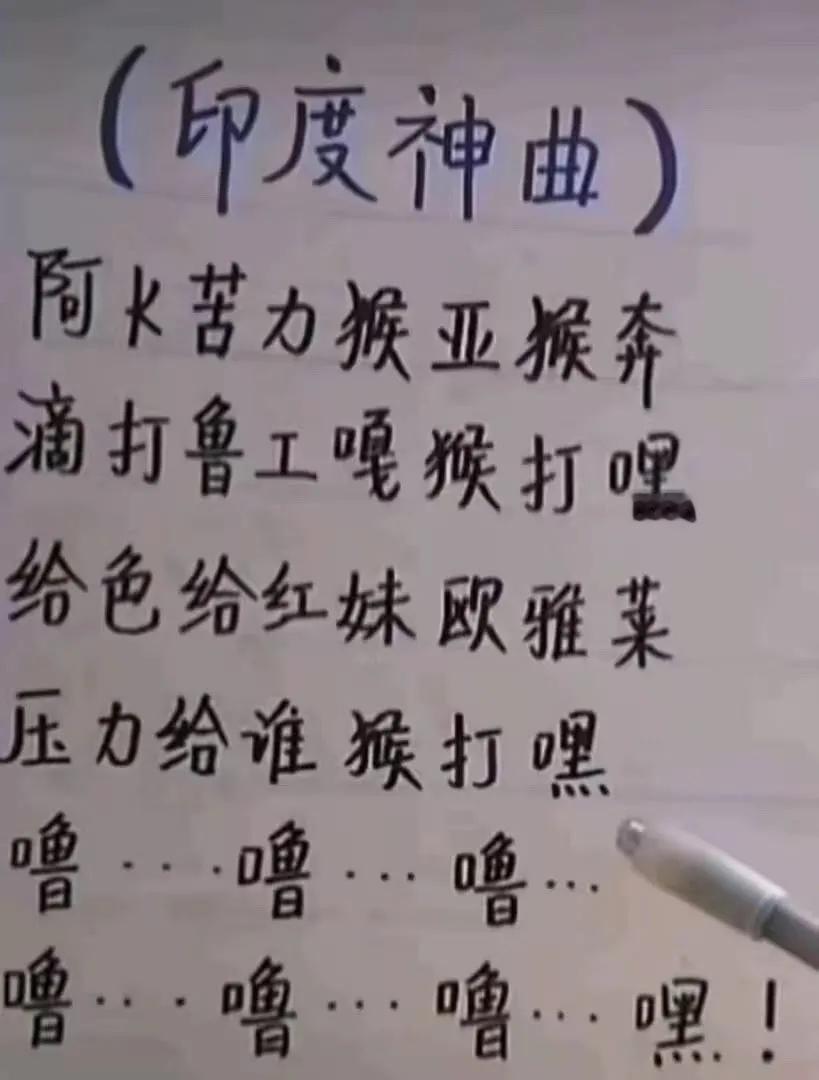 (印度神曲)
阿K苦力猴亚猴奔
滴打鲁工嘎猴打嘿
给色给红妹欧雅菜
压力给谁猴打嘿
噜···噜···噜···
噜···噜···噜···嘿!